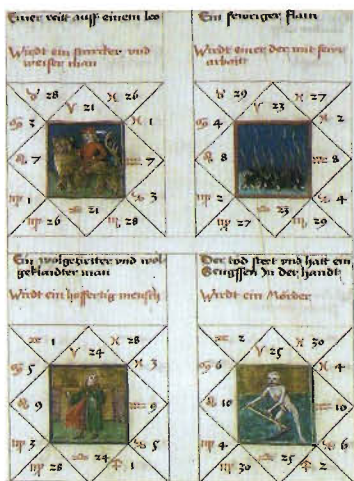 Einer reitt auff einem leo
Wirdt ein starcker und
weiser man
♉ 28
♓ 26
♈ 21
♋ 3
♓ 1
♌ 7
♒ 7
♍ 1
♑ 3
♍ 26
♎ 21
♏ 28
Ein fewriger flam
Wirdt einer der mit fewr
arbeitt
♉ 29
♓ 27
♈ 23
♋ 4
♓ 2
♌ 8
♒ 8
♍ 2
♑ 4
♍ 27
♎ 23
♏ 29
Ein wolgezirter und wol
geklaidter man
Wirdt ein hoffertig mensch
1
♓ 28
♈ 24
♋ 5
♓ 3
♌ 9
♒ 9
♍ 3
♑ 5
♍ 28
♎ 24
♐ 1
Der tod stett und hatt ein
Sengssen In der handt
Wirdt ein Mörder
2
♓ 30
♈ 25
♋ 6
♓ 4
♌ 10
♒ 10
♍ 4
♑ 6
♍ 30
♎ 25
♐ 2